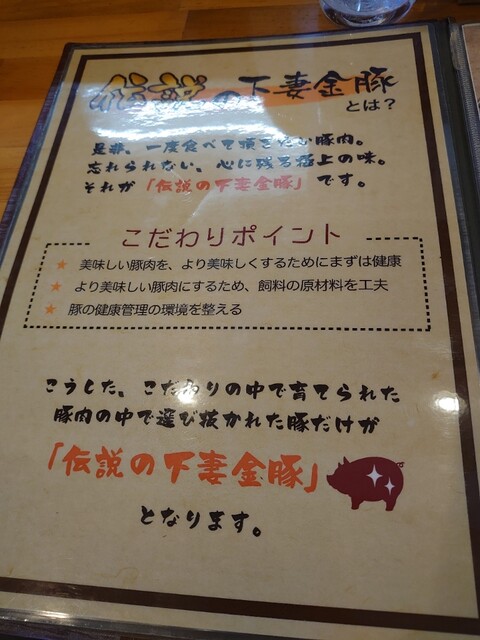 伝説の下妻金豚
とは?
是非、一度食べて頂きたい豚肉。
忘れられない、心に残る極上の味。
それが「伝説の下妻金豚」です。
こだわりポイント
★ 美味しい豚肉を、より美味しくするためにまずは健康
★ より美味しい豚肉にするため、飼料の原材料を工夫
★ 豚の健康管理の環境を整える
こうした、こだわりの中で育てられた
豚肉の中で選び抜かれた豚だけが
「伝説の下妻金豚」
となります。